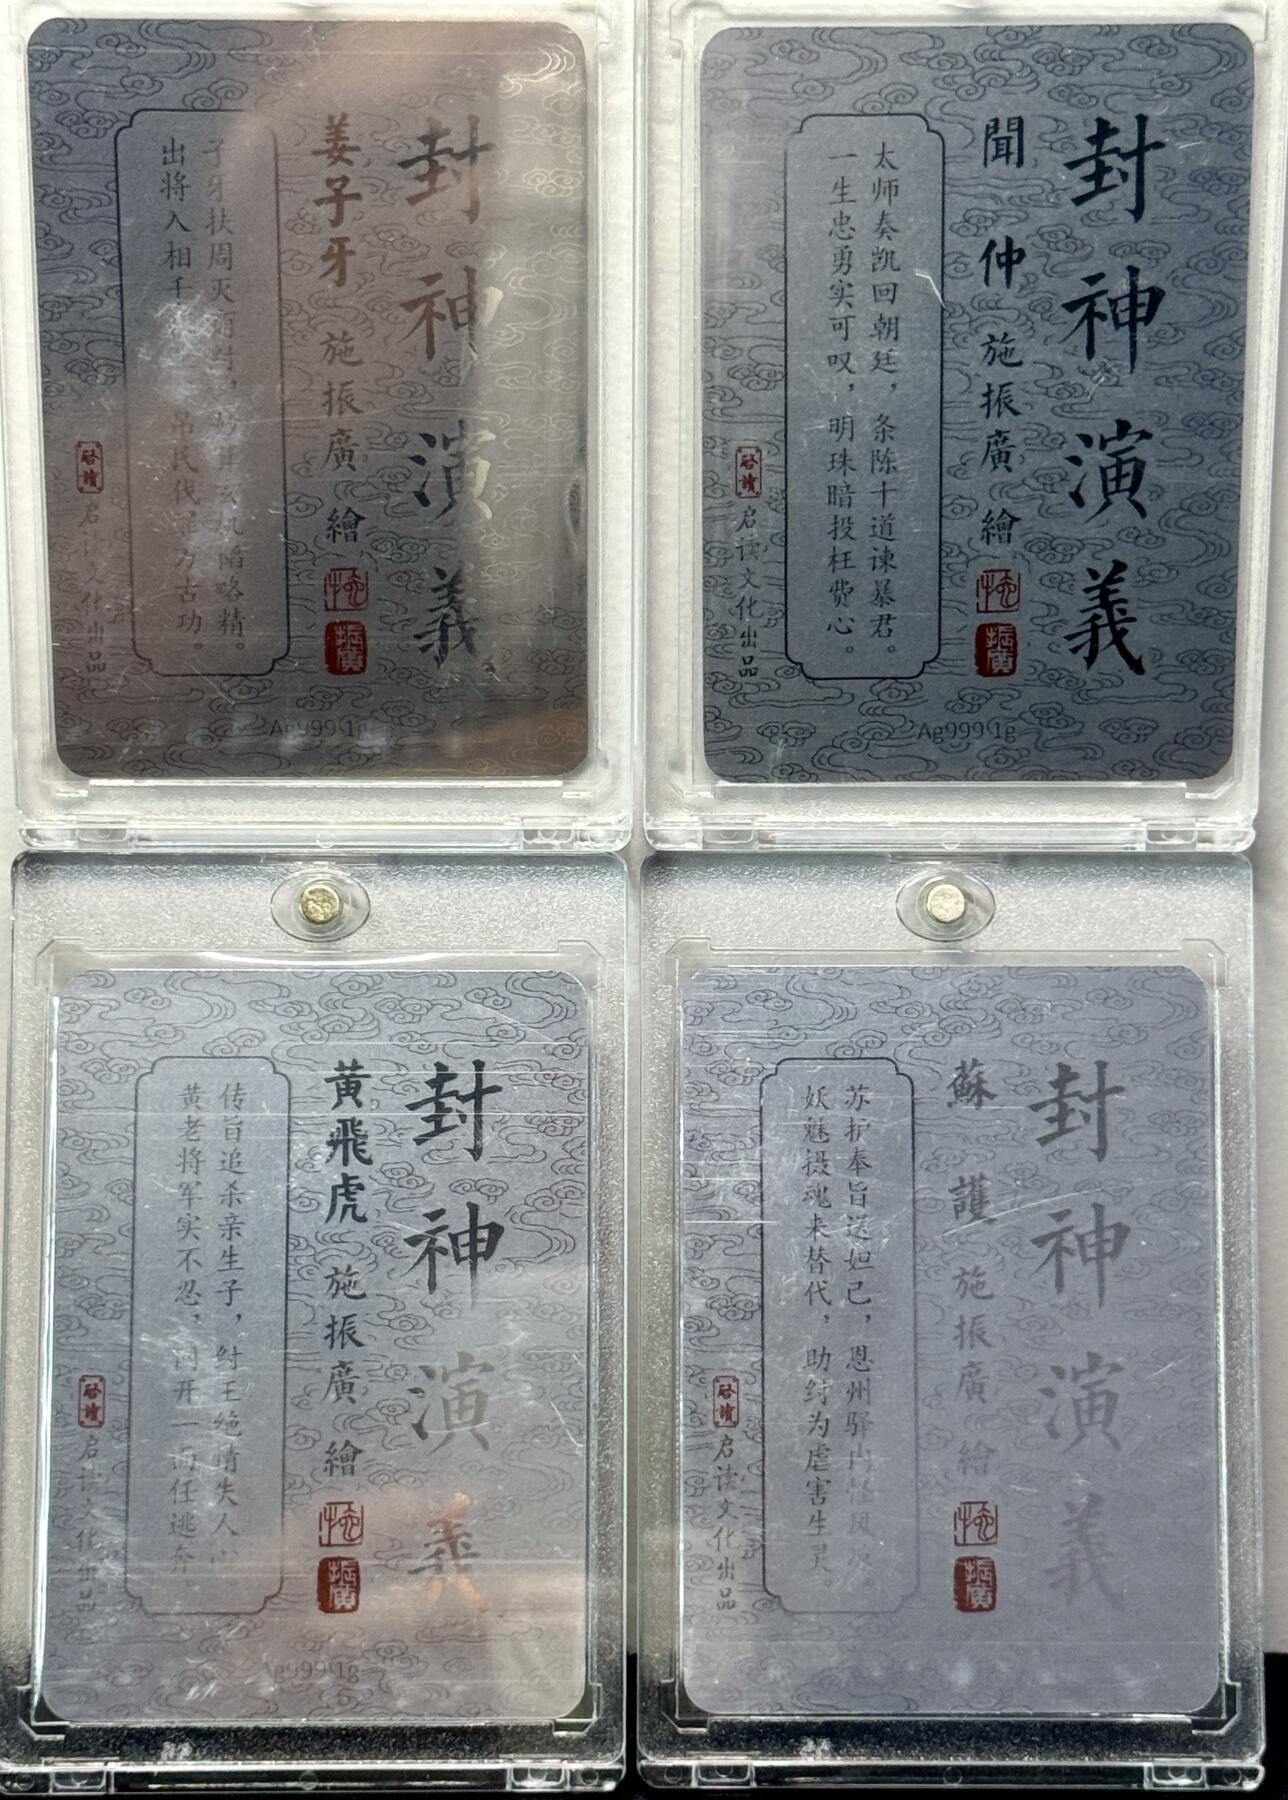 封神演義
姜子牙 施振廣 繪
子牙扶周灭 略精。
出将入相千 吊民伐罪万古功。
启读文化出品
Ag999 1g
封神演義
聞仲 施振廣 繪
太师奏凯回朝廷，条陈十道谏暴君。
一生忠勇实可叹，明珠暗投枉费心。
启读文化出品
Ag999 1g
封神演義
黃飛虎 施振廣 繪
传旨追杀亲生子，纣王绝情失人心。
黄老将军实不忍，网开一面任逃奔。
启读文化出品
Ag999 1g
封神演義
蘇護 施振廣 繪
苏护奉旨送妲己，恩州驿内怪风
妖魅摄魂来替代，助纣为虐害生灵。
启读文化出品